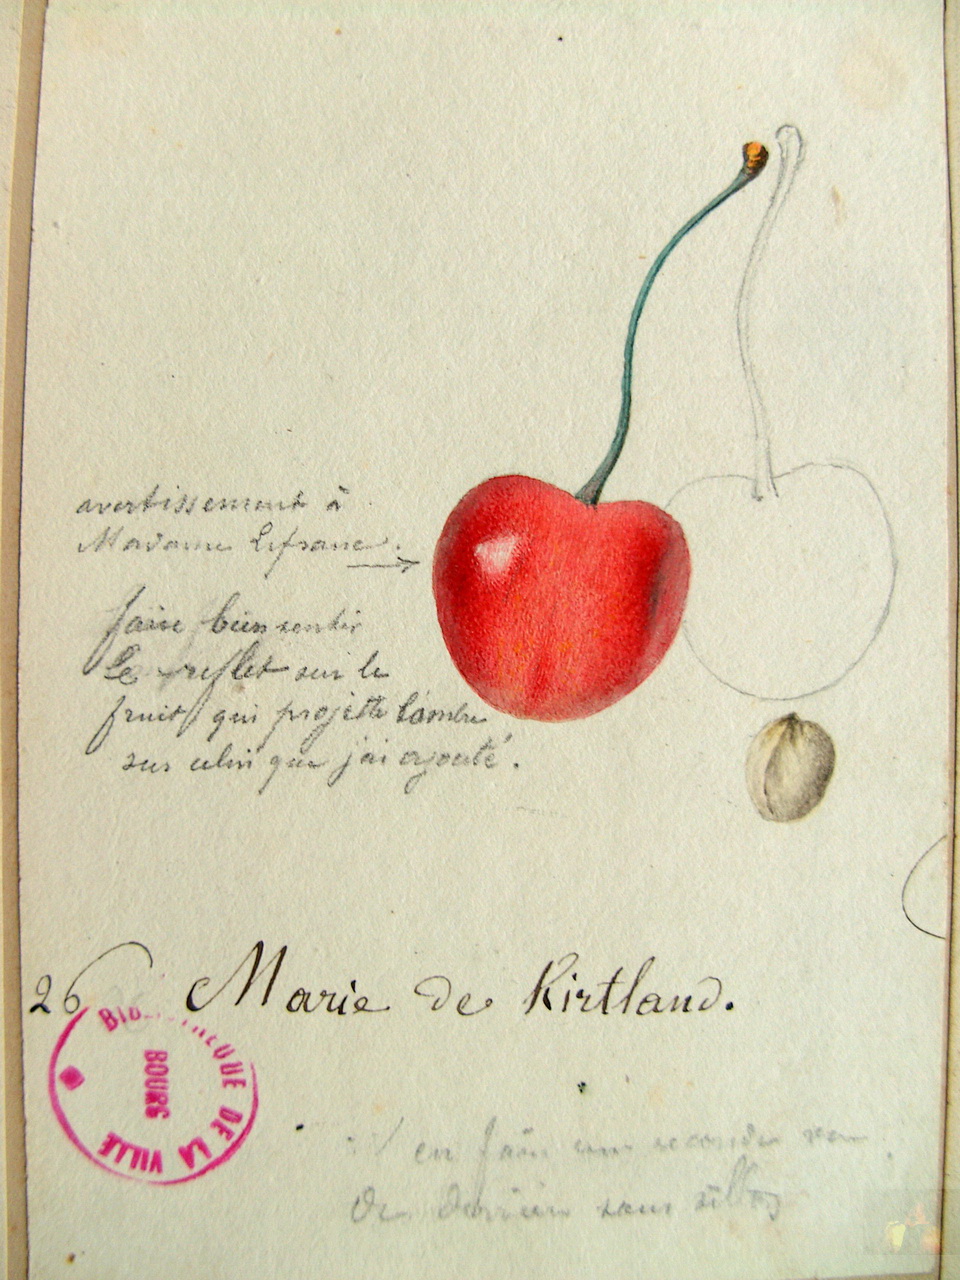 avertissement à
Madame Lefranc.
faire bien sentir
Le reflet sur le
fruit qui projette l'ombre
sur celui que j'ai ajouté.
26 Marie de Kirtland.
BIBLIOTHEQUE DE LA VILLE
BOURG
en faire une seconde
de derrière sans